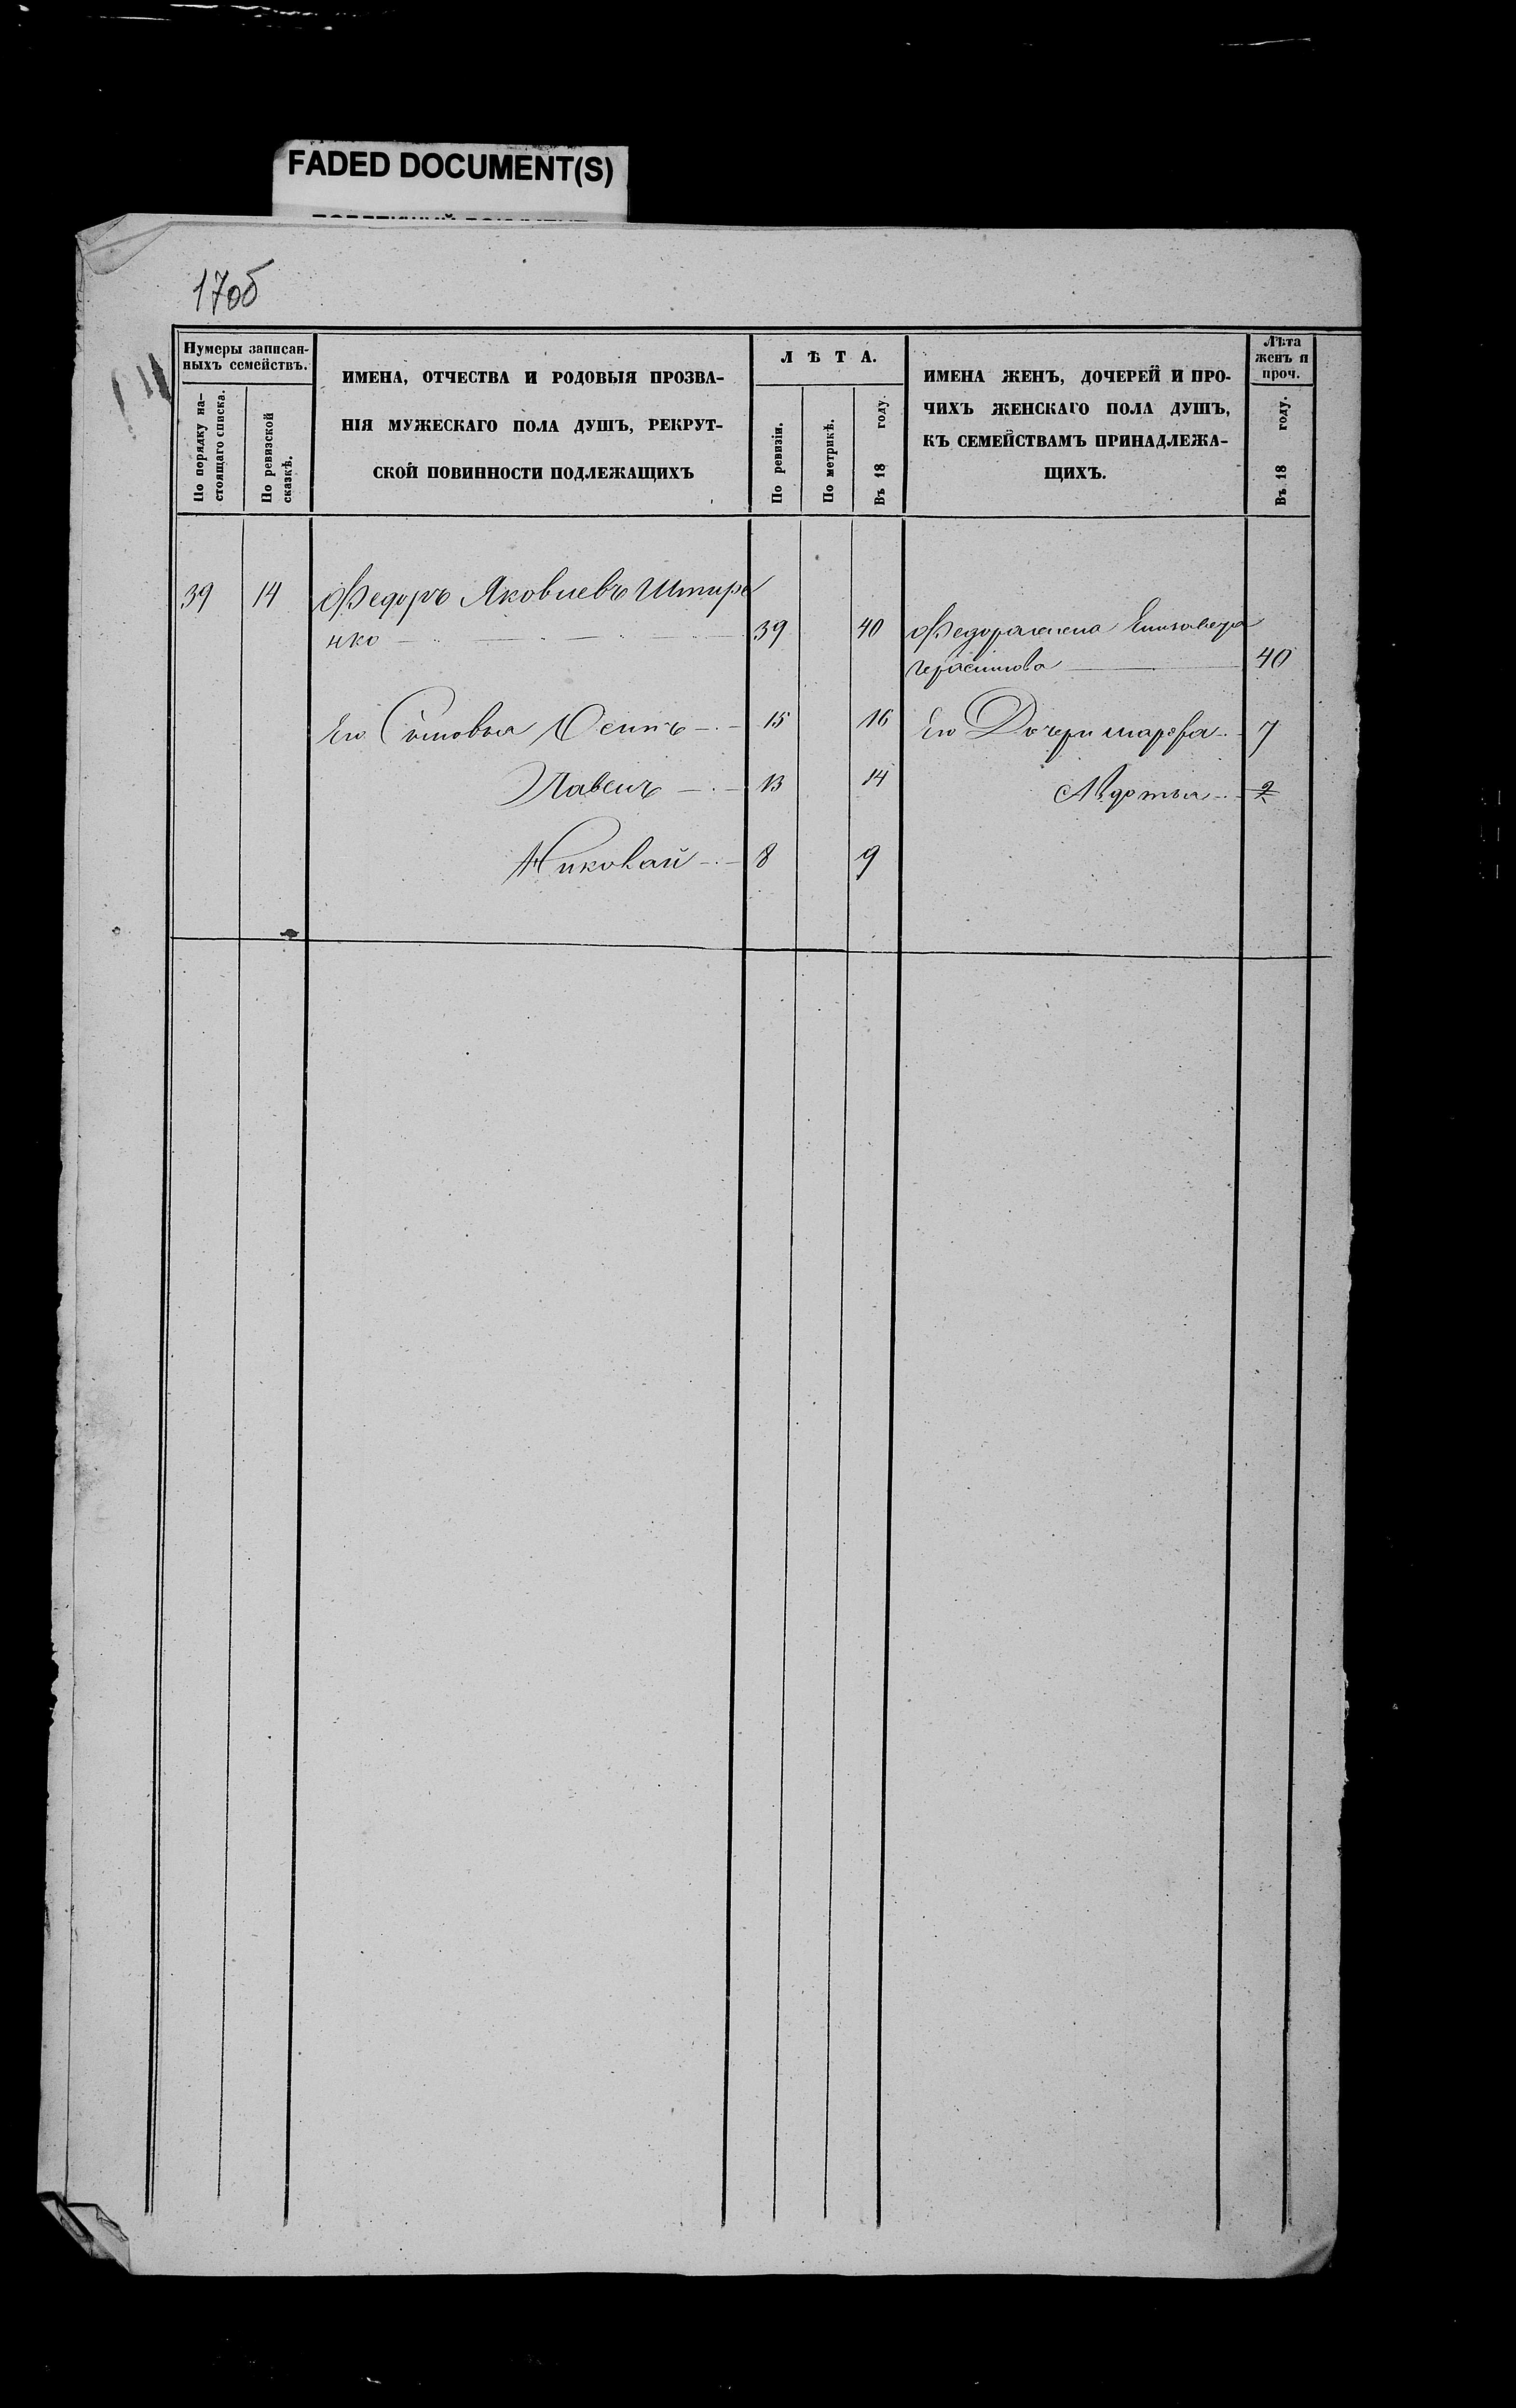 FADED DOCUMENT(S)
170б
Нумеры записан-
ныхъ семействъ.
По порядку на-
стоящаго списка.
По ревизской
сказкѣ.
ИМЕНА, ОТЧЕСТВА И РОДОВЫЯ ПРОЗВА-
НІЯ МУЖЕСКАГО ПОЛА ДУШЪ, РЕКРУТ-
СКОЙ ПОВИННОСТИ ПОДЛЕЖАЩИХЪ
ЛѢТА.
По ревизіи.
По метрикѣ.
Въ 18 году.
ИМЕНА ЖЕНЪ, ДОЧЕРЕЙ И ПРО-
ЧИХЪ ЖЕНСКАГО ПОЛА ДУШЪ,
КЪ СЕМЕЙСТВАМЪ ПРИНАДЛЕЖА-
ЩИХЪ.
Лѣта
женъ и
проч.
Въ 18 году.
39 14 Федоръ Яковлевъ Штире
нко 39 40 Федора жена Елизавера
Герасимова 40
Его Сыновья Осипъ 15 16 Его Дочери Марфа 7
Павелъ 13 14 Авдотья 2
Николай 8 9